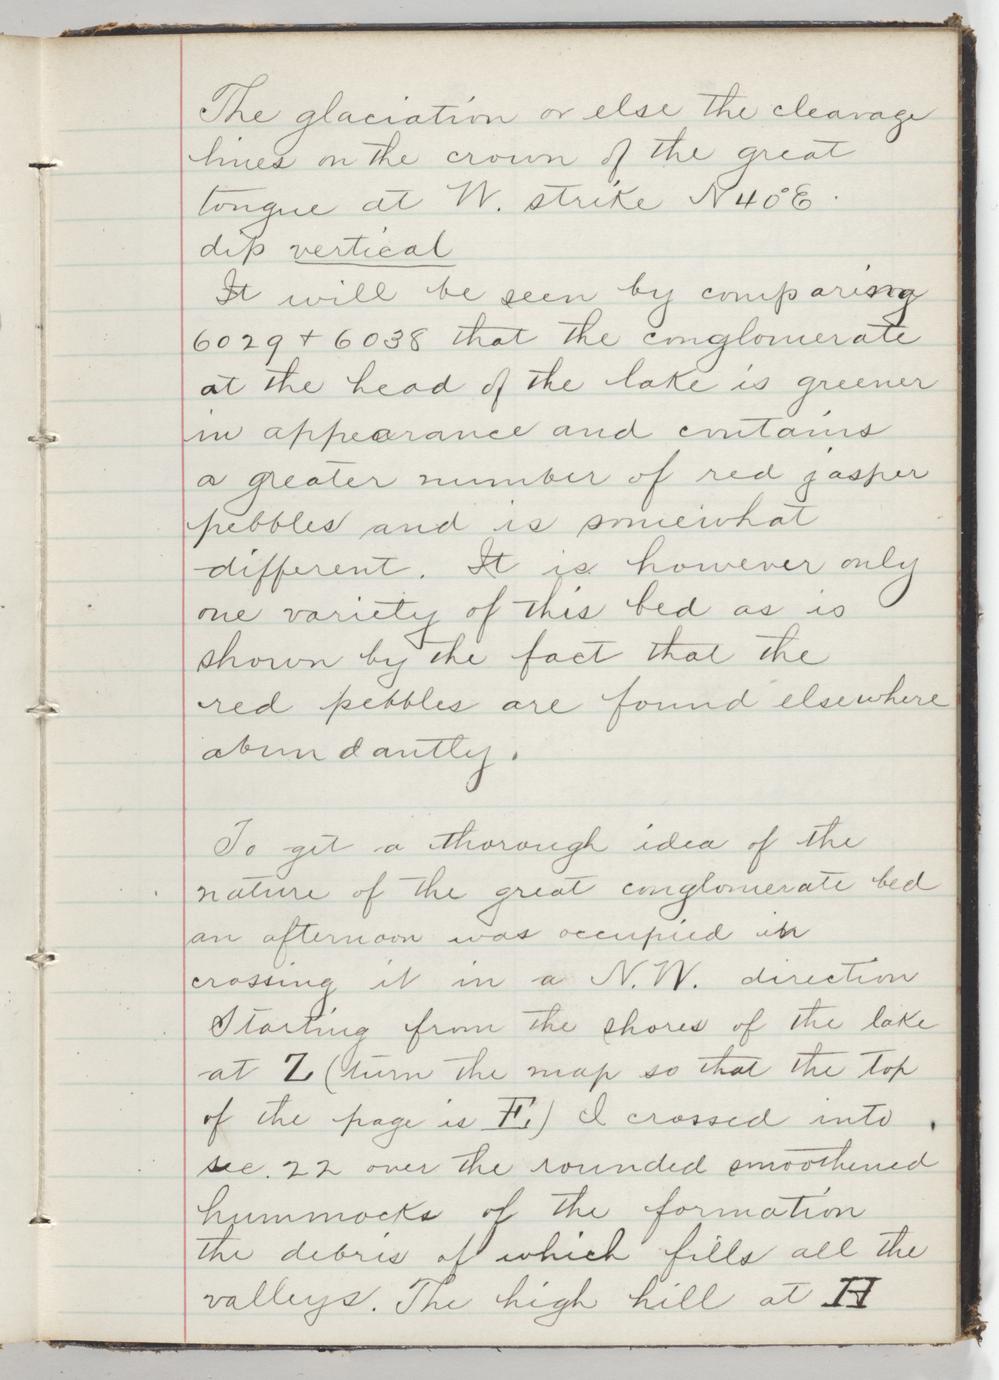 The glaciation or else the cleavage
lines on the crown of the great
tongue at W. strike N40°E.
dip vertical
It will be seen by comparing
6029 + 6038 that the conglomerate
at the head of the lake is greener
in appearance and contains
a greater number of red jasper
pebbles and is somewhat
different. It is however only
one variety of this bed as is
shown by the fact that the
red pebbles are found elsewhere
abundantly.
To get a thorough idea of the
nature of the great conglomerate bed
an afternoon was occupied in
crossing it in a N.W. direction
Starting from the shores of the lake
at Z (turn the map so that the top
of the page is E.) I crossed into
sec. 22 over the rounded smoothened
hummocks of the formation
the debris of which fills all the
valleys. The high hill at H